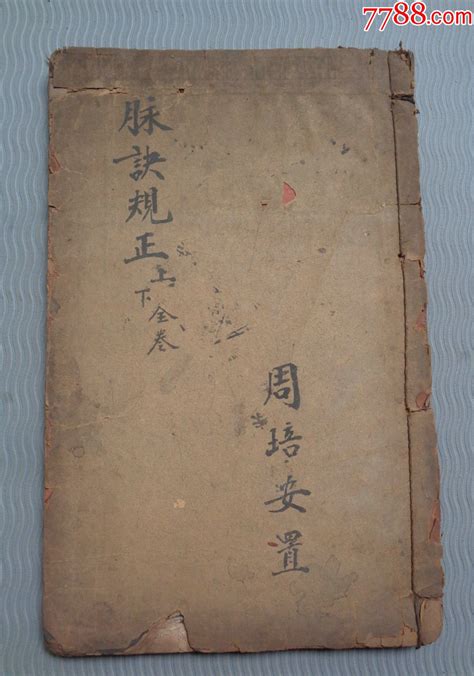 7788.com
脉訣規正
上下全卷
周培安置